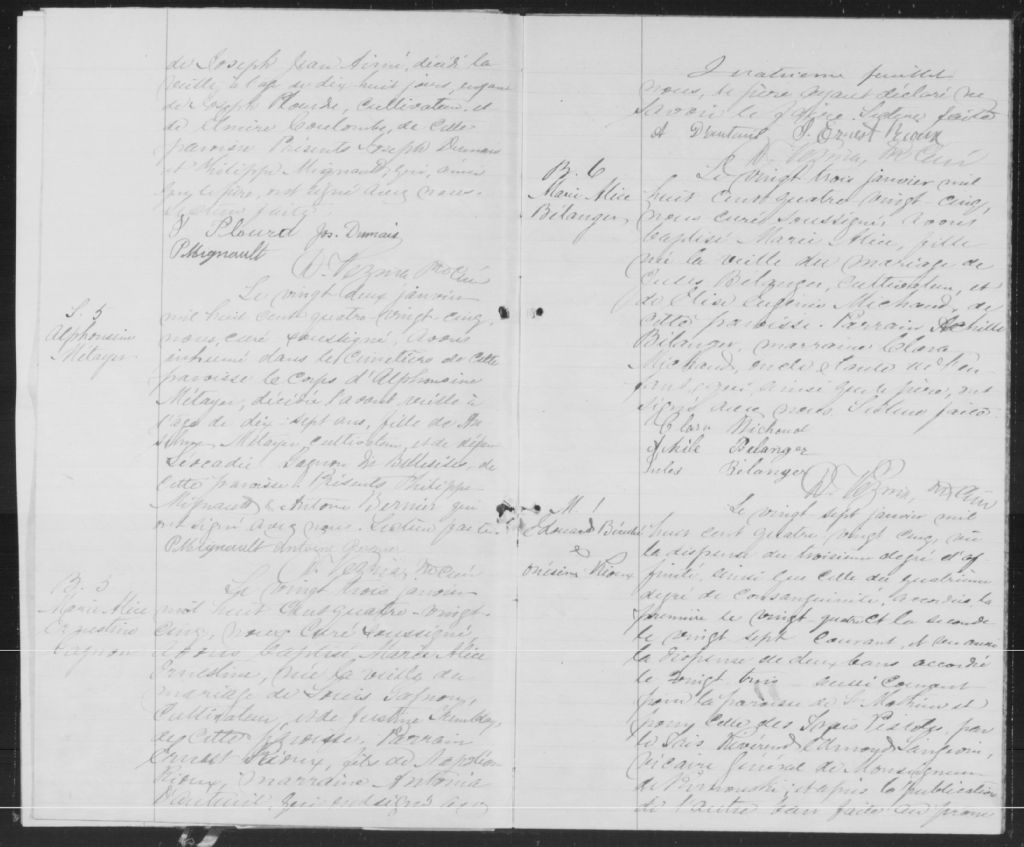 de Joseph Jean Aimé, décédé la
veille, à l'age de dix huit jours, enfant
de Joseph Plourde, cultivateur, et
de Elmire Coulombe, de cette
paroisse. Présents Joseph Dumais
et Philippe Mignault, qui, ainsi
que le père, ont signé avec nous.
Lecture faite.
J Plourd Jos. Dumais
P Mignault
D. Vézina, Ptre Curé
S. 5
Alphonsine
Métayer
Le vingt deux janvier
mil huit cent quatre-vingt-cinq,
nous, curé soussigné, avons
inhumé dans le Cimetière de cette
paroisse le corps d'Alphonsine
Métayer, décédée l'avant veille à
l'age de dix-sept ans, fille de
Métayer, cultivateur, et de défunte
Léocadie Gagnon de Bellesiles, de
cette paroisse. Présents Philippe
Mignault & Antoine Bernier qui
ont signé avec nous. Lecture faite.
P Mignault Antoine
D. Vézina, Ptre Curé
B. 5
Marie Alice
Ernestine
Gagnon
Le vingt trois janvier
mil huit cent quatre-vingt-
cinq, nous curé soussigné
avons baptisé Marie Alice
Ernestine, née la veille du
mariage de Louis Gagnon,
cultivateur, et de Justine Tremblay,
de cette paroisse. Parrain
Ernest Rioux, fils de Napoléon
Rioux, marraine Antonia
D'Auteuil, qui ont signé avec
Quatrième feuillet
nous, le père ayant déclaré ne
savoir le faire. Lecture faite
A Dauteuil J. Ernest Rioux
D. Vézina, Ptre Curé
B. 6
Marie Alice
Bélanger
Le vingt trois janvier mil
huit cent quatre vingt-cinq,
nous curé soussigné, avons
baptisé Marie Alice, fille
née la veille du mariage de
Jules Bélanger, cultivateur, et
de Élise Eugénie Michaud, de
cette paroisse. Parrain Achille
Bélanger, marraine Clara
Michaud, oncle & tante de l'en-
fant, qui, ainsi que le père, ont
signé avec nous. Lecture faite.
Clara Michaud
Achile Bélanger
Jules Bélanger
D. Vézina, Ptre Curé
M. 1
Edouard Bérubé
&
Onésime Rioux
Le vingt-sept janvier mil
huit cent quatre-vingt cinq, vu
la dispense du troisième degré d'af
finité, ainsi que celle du quatrième
degré de consanguinité, accordées la
première le vingt quatre et la seconde
le vingt sept courant, et vu aussi
la dispense de deux bans accordée
le vingt trois aussi courant
pour la paroisse de St Mathieu et
pour celle des Trois Pistoles, par
le Révérend Edmond Langevin,
vicaire général de Monseigneur
de Rimouski; et après la publication
de l'autre ban faite au prône